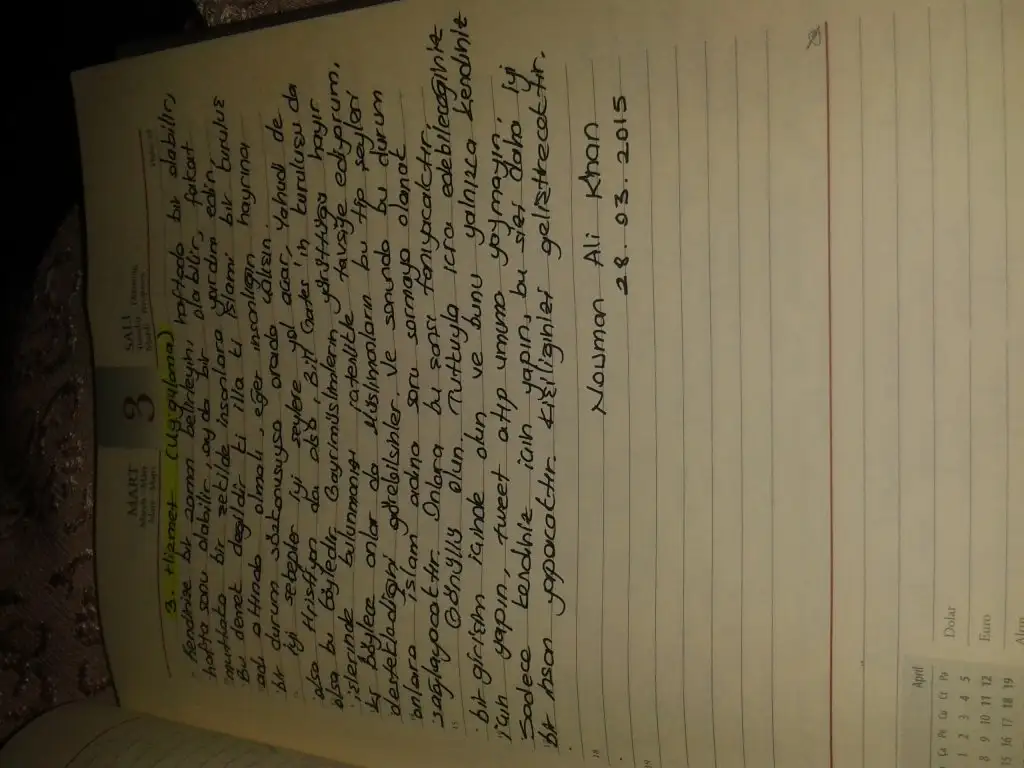 MART
3
SALI
3. Hizmet (uygulama)
Kendinize bir zaman belirleyin, haftada bir olabilir,
hafta sonu olabilir, ayda bir olabilir, fakat
mutlaka bir şekilde insanlara yardım edin.
Bu demek değildir ki illa ki İslami bir kuruluş
adı altında olmalı, eğer insanlığın hayrına
bir durum sözkonusuysa orada çalışın
iyi sebepler iyi şeylere yol açar, Yahudi de
olsa Hristiyan da olsa, Bill Gates'in kuruluşu da
olsa bu böyledir. Gayrimüslimlerin yürüttüğü hayır
işlerinde bulunmanızı tavsiye ediyorum,
ki böylece onlar da Müslümanların bu tip şeyleri
desteklediğini görebilsinler. Ve sonunda bu durum
onlara İslam adına soru sormaya olanak
sağlayacaktır. Onlara bu şansı tanıyacaktır.
Gönüllü olun. Tutkuyla icra edebileceğiniz
bir girişim içinde olun ve bunu yalnızca kendiniz
için yapın, tweet atıp umuma yaymayın,
sadece kendiniz için yapın, bu sizi daha iyi
bir insan yapacaktır. Kişiliğinizi geliştirecektir.
Nowman Ali Khan
28.03.2015
18
19
April
Dolar
Euro
Ca Pe Cu Ct Pa
1 2 3 4 5
8 9 10 11 12
15 16 17 18 19